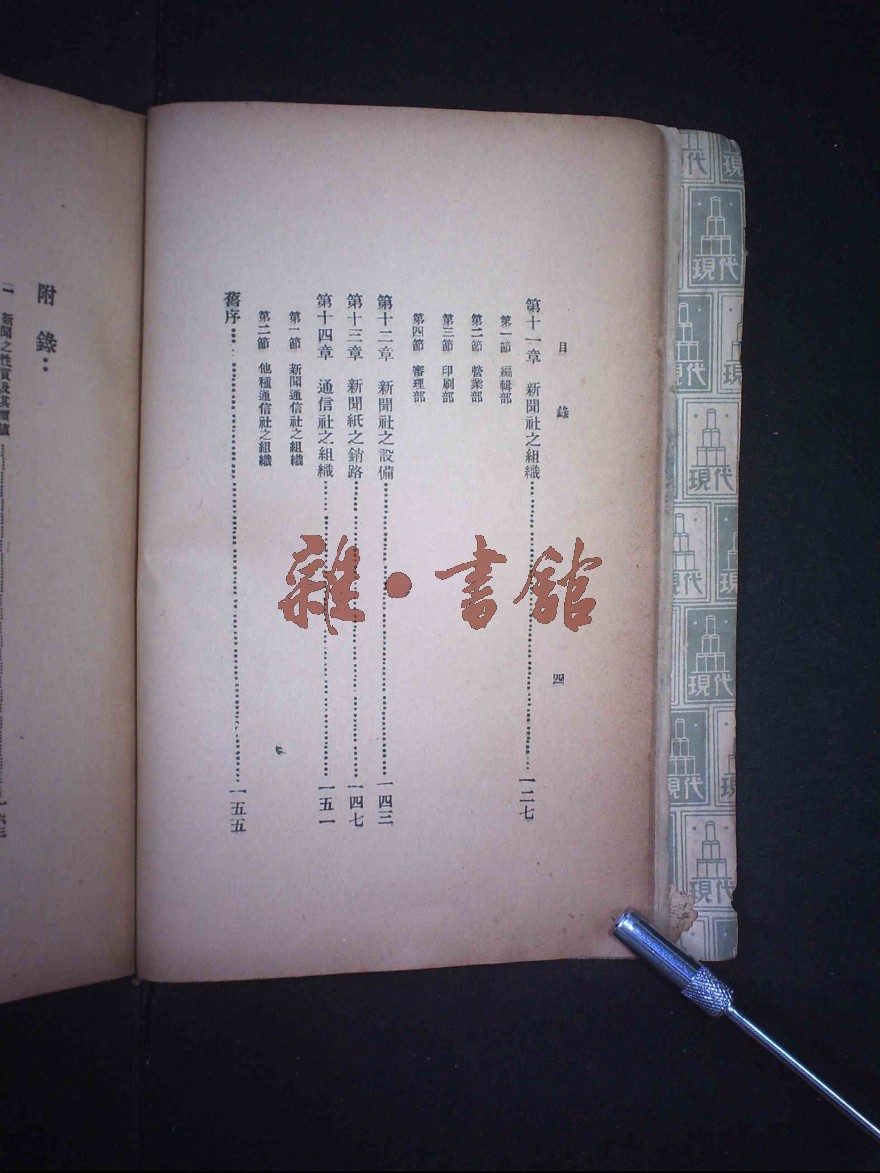 目錄 四
第十一章 新聞社之組織 一二七
第一節 編輯部
第二節 營業部
第三節 印刷部
第四節 審理部
第十二章 新聞社之設備 一四三
第十三章 新聞紙之銷路 一四七
第十四章 通信社之組織 一五一
第一節 新聞通信社之組織
第二節 他種通信社之組織
舊序 一五五
附錄
一 新聞之性質及其價值 一六三
雜・書館
現代
現代
現代
現代
現代
現代
現代
現代